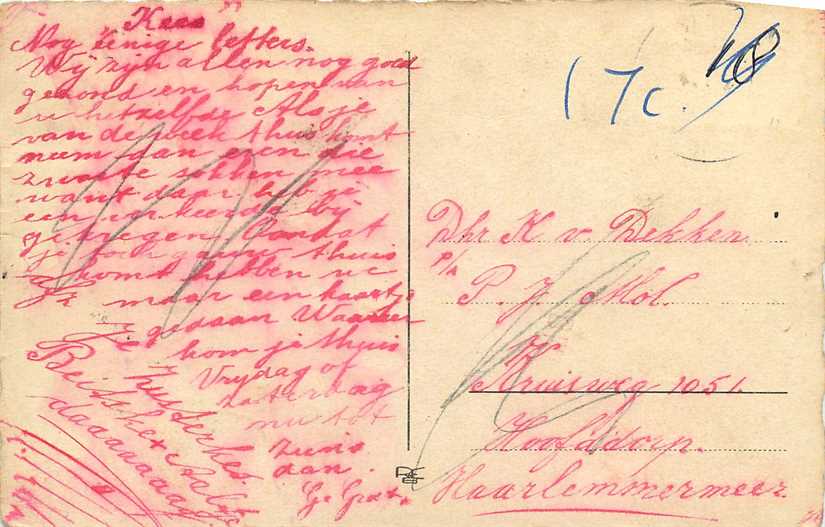 „Kees"
Nog eenige letters.
Wij zijn allen nog goed
gezond en hopen van
u hetzelfde Als je
van de week thuis komt
neem dan even die
zwarte sokken mee
want daar heb je
een verkeerde bij
gekregen Omdat
je toch gauw thuis
komt hebben we
maar een kaartje
gedaan Wanneer
kom je thuis
Vrijdag of
zaterdag
nu tot
ziens
dan.
Je Zusterke
Beitske
daaaaaaaag
17c.
Dhr K v. Dekken
P/a
P. J. Mol.
Kruisweg 1051.
Hoofddorp.
Haarlemmermeer